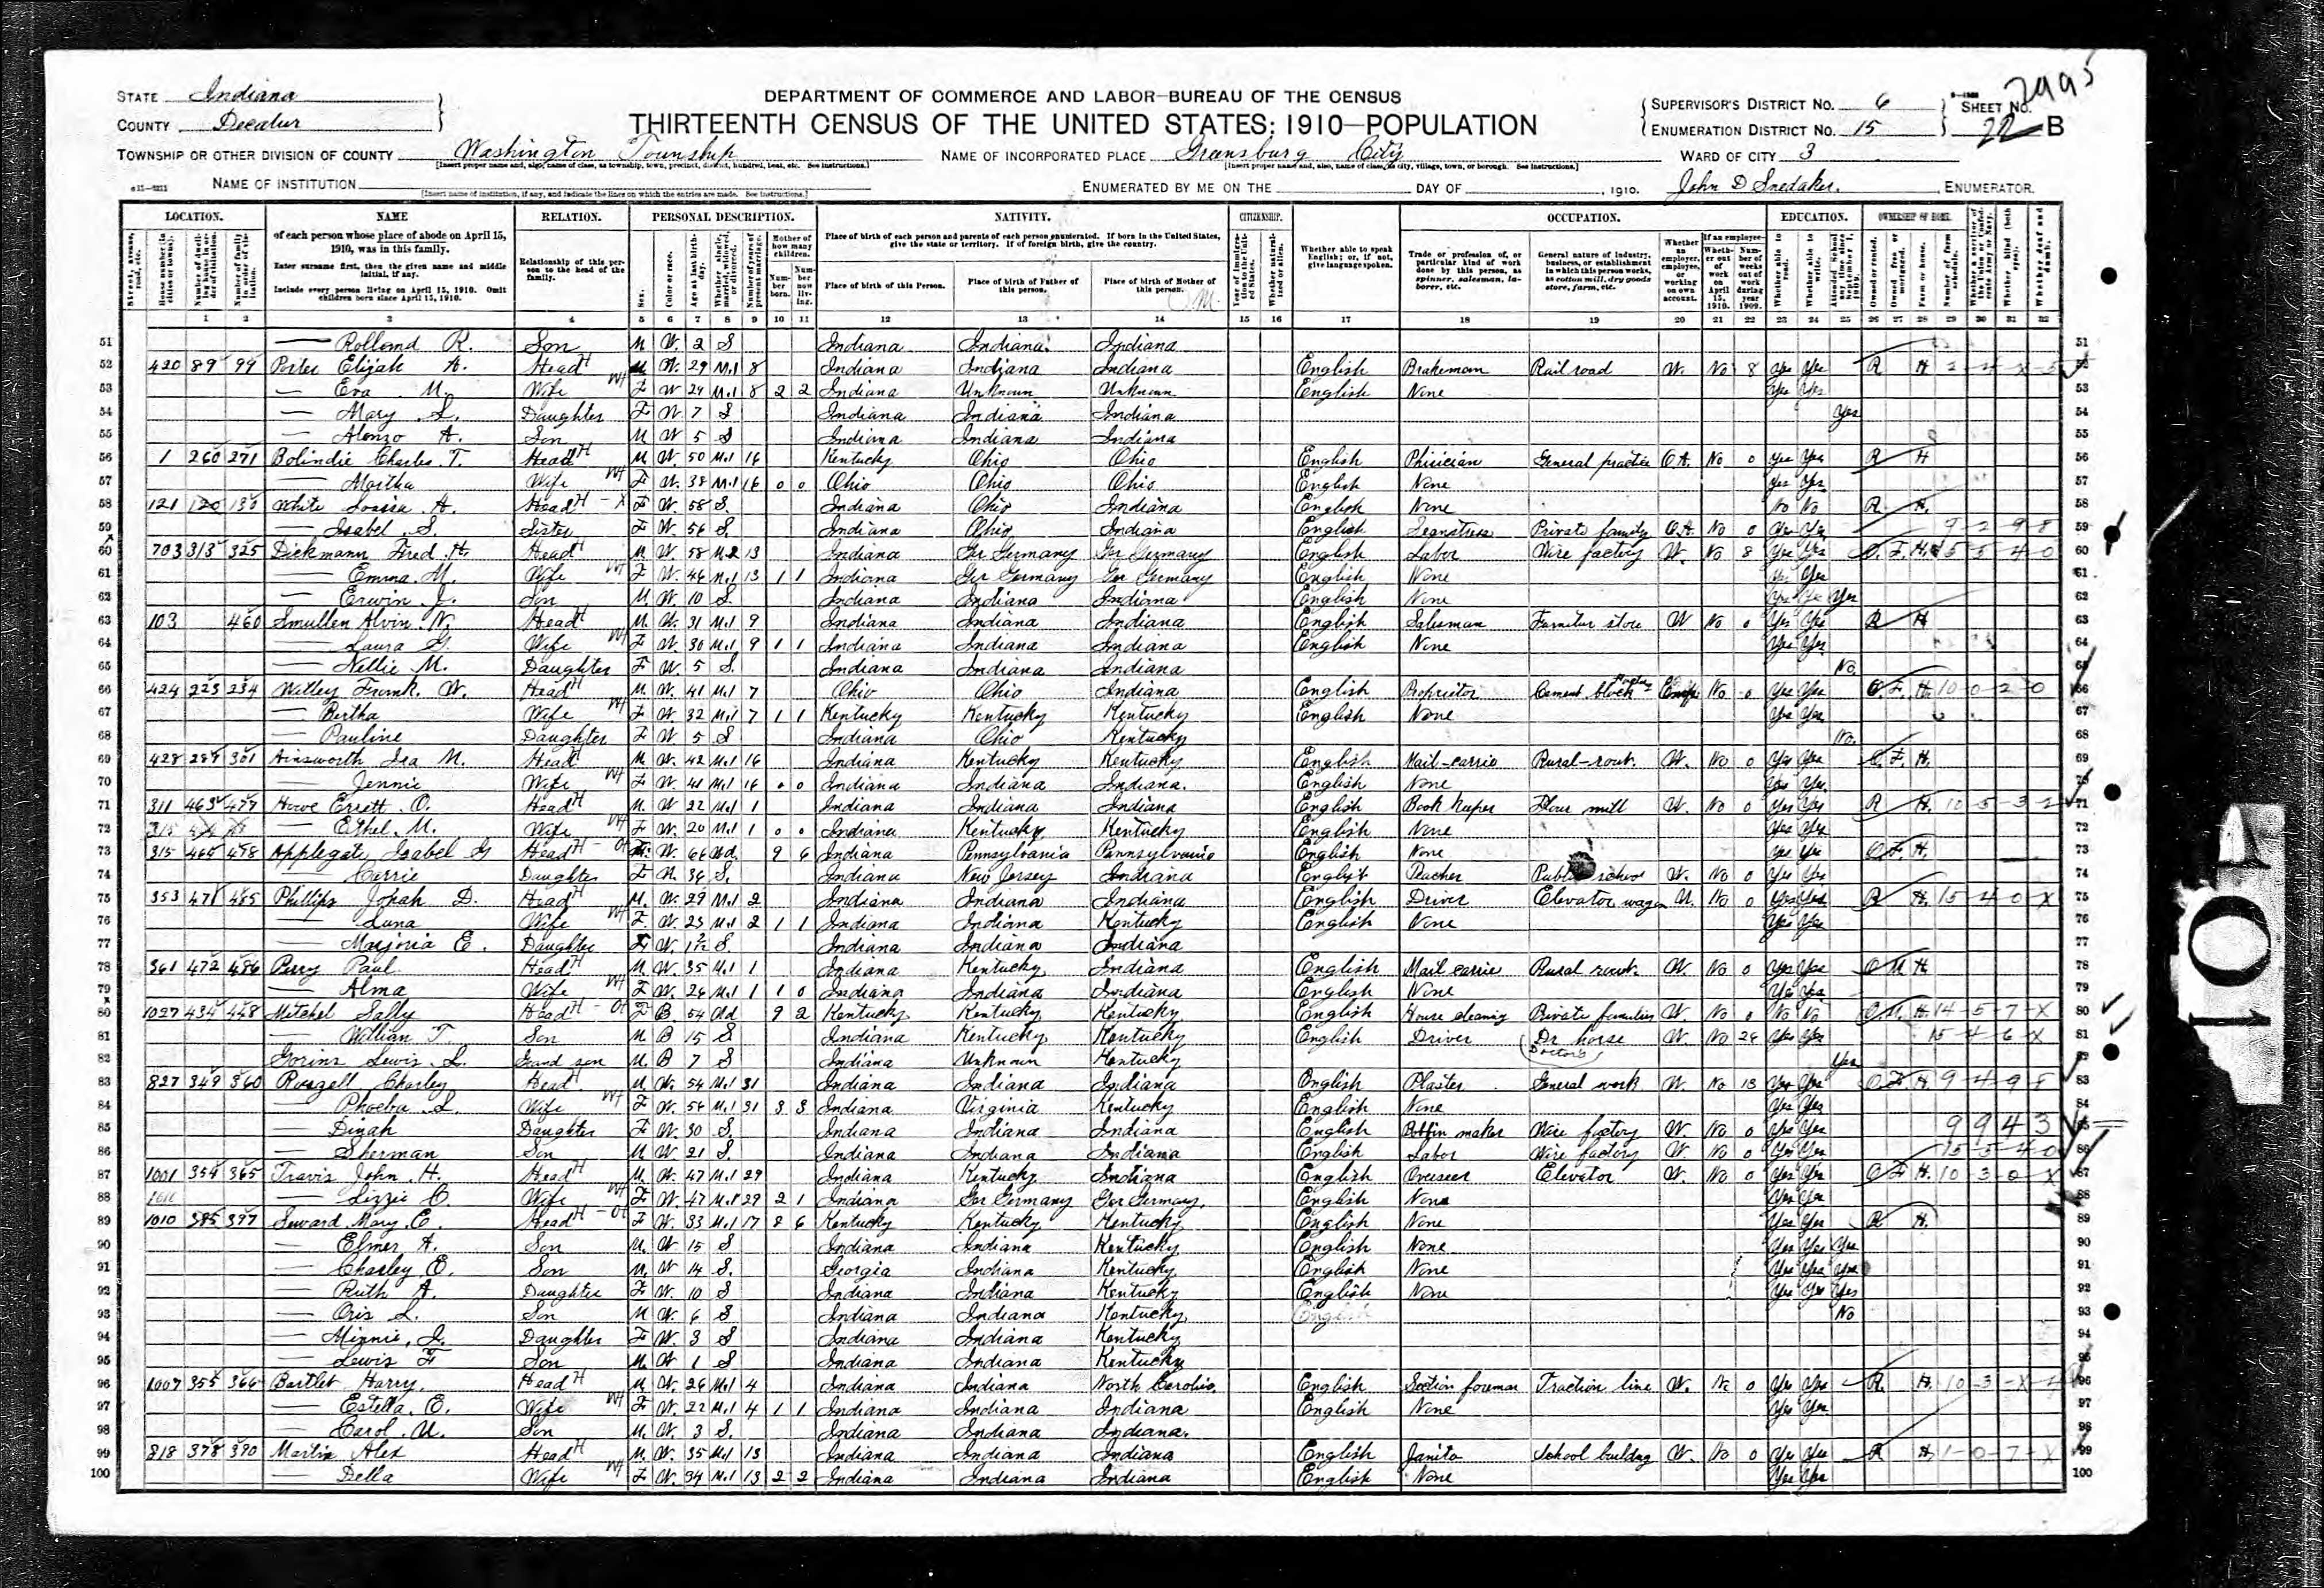 STATE Indiana
COUNTY Decatur
DEPARTMENT OF COMMERCE AND LABOR—BUREAU OF THE CENSUS
THIRTEENTH CENSUS OF THE UNITED STATES: 1910—POPULATION
SUPERVISOR'S DISTRICT NO. 6
ENUMERATION DISTRICT NO. 15
SHEET NO. 22 B
2995
TOWNSHIP OR OTHER DIVISION OF COUNTY Washington Township
NAME OF INCORPORATED PLACE Greensburg City
WARD OF CITY 3
NAME OF INSTITUTION
ENUMERATED BY ME ON THE DAY OF , 1910.
John D Snedaker, ENUMERATOR.
LOCATION. NAME RELATION. PERSONAL DESCRIPTION. NATIVITY. CITIZENSHIP. OCCUPATION. EDUCATION. OWNERSHIP OF HOME.
of each person whose place of abode on April 15, 1910, was in this family.
Enter surname first, then the given name and middle initial, if any.
Include every person living on April 15, 1910. Omit children born since April 15, 1910.
Relationship of this person to the head of the family.
Place of birth of each person and parents of each person enumerated. If born in the United States, give the state or territory. If of foreign birth, give the country.
Place of birth of this Person. Place of birth of Father of this person. Place of birth of Mother of this person.
Whether able to speak English; or, if not, give language spoken.
1 2 3 4 5 6 7 8 9 10 11 12 13 14 15 16 17 18 19 20 21 22 23 24 25 26 27 28 29 30 31 32
51 — Rollond R. Son M W. 2 S Indiana Indiana Indiana
52 420 89 99 Porter Elijah A. Head M W. 29 M.1 8 Indiana Indiana Indiana English Brakeman Railroad W. No 8 Yes Yes R H
53 — Eva M. Wife F W 24 M.1 8 2 2 Indiana Unknown Unknown English None Yes Yes
54 — Mary L. Daughter F W. 7 S Indiana Indiana Indiana Yes
55 — Alonzo A. Son M W 5 S Indiana Indiana Indiana
56 1 260 271 Charles T. Head M W. 50 M.1 16 Kentucky Ohio Ohio English Phisician General practice O.A. No 0 Yes Yes R H
57 — Martha Wife F W. 38 M.1 16 0 0 Ohio Ohio Ohio English None Yes Yes
58 121 120 130 White A. Head F W. 58 S. Indiana Ohio Indiana English None No No R H.
59 — Isabel S. Sister F W. 56 S. Indiana Ohio Indiana English Private family O.A. No 0 Yes Yes 9 2 9 8
60 703 313 325 Dickmann Fred H. Head M W. 58 M2 13 Indiana Ger Germany Ger Germany English Labor Wire factory W. No 8 Yes Yes O. F. H.
61 — Emma M. Wife F W. 46 M.1 13 1 1 Indiana Ger Germany Ger Germany English None Yes Yes
62 — Erwin J. Son M. W. 10 S. Indiana Indiana Indiana English None Yes Yes Yes
63 103 460 Smullen Alvin N. Head M. W. 31 M.1 9 Indiana Indiana Indiana English Salesman Furnitur store W No 0 Yes Yes R H
64 — Laura G. Wife F W. 30 M.1 9 1 1 Indiana Indiana Indiana English None Yes Yes
65 — Nellie M. Daughter F W. 5 S. Indiana Indiana Indiana No.
66 424 223 234 Willey Frank. W. Head M. W. 41 M.1 7 Ohio Ohio Indiana English Proprietor Cement block Emp No 0 Yes Yes O. F. H. 10 0 2 0
67 — Bertha Wife F W. 32 M.1 7 1 1 Kentucky Kentucky Kentucky English None Yes Yes
68 — Pauline Daughter F W. 5 S Indiana Ohio Kentucky No.
69 428 289 301 Ainsworth Ira M. Head M W. 42 M.1 16 Indiana Kentucky Kentucky English Mail-carrie Rural-rout. W. No 0 Yes Yes O. F. H.
70 — Jennie Wife F W. 41 M.1 16 0 0 Indiana Indiana Indiana. English None Yes Yes
71 311 463 477 Howe Errett O. Head M. W 22 M.1 1 Indiana Indiana Indiana English Book keeper Flour mill W. No 0 Yes Yes R H. 10 5 3 2
72 — Ethel M. Wife F W. 20 M.1 1 0 0 Indiana Kentucky Kentucky English None Yes Yes
73 315 465 478 Applegate Isabel G Head F W. 66 Wd. 9 6 Indiana Pennsylvania Pennsylvania English None Yes Yes O F. H.
74 — Carrie Daughter F W. 36 S. Indiana New Jersey Indiana English Teacher Public school W. No 0 Yes Yes
75 353 471 485 Phillips Jonah D. Head M. W. 29 M.1 2 Indiana Indiana Indiana English Driver Elevator wagon W. No 0 Yes Yes R H. 15 4 0 X
76 — Luna Wife F W. 23 M.1 2 1 1 Indiana Indiana Kentucky English None Yes Yes
77 Marjoria E. Daughter F W. S. Indiana Indiana Indiana
78 361 472 486 Perry Paul Head M. W. 35 M.1 1 Indiana Kentucky Indiana English Mail carrie Rural rout. W. No 0 Yes Yes O M H
79 — Alma Wife F W. 26 M.1 1 1 0 Indiana Indiana Indiana English None Yes Yes
80 1027 434 448 Mitchel Sally Head F B. 54 Wd 9 2 Kentucky Kentucky Kentucky English House cleaning Private families W No 0 No No O. M. H. 14 5 7 X
81 — William T. Son M B 15 S Indiana Kentucky Kentucky English Driver Dr horse (Doctors) W No 26 Yes Yes 15 4 6 X
82 Lewis L. Grand son M. B 7 S Indiana Unknown Kentucky Yes
83 827 349 360 Ruszell Charley Head M. W. 54 M.1 31 Indiana Indiana Indiana English Plaster General work W. No 13 Yes Yes O F H 9 4 9 8
84 — Phoeba L. Wife F W. 56 M.1 31 3 3 Indiana Virginia Kentucky English None Yes Yes
85 — Dinah Daughter F W. 30 S Indiana Indiana Indiana English maker Wire factory W. No 0 Yes Yes 9 9 4 3
86 — Sherman Son M W 21 S. Indiana Indiana Indiana English Labor Wire factory W. No 0 Yes Yes 15 5 4 0
87 1001 354 365 Travis John H. Head M. W. 47 M.1 29 Indiana Kentucky Indiana English Overseer Elevator W. No 0 Yes Yes O F H. 10 3 0 X
88 — Lizzie C. Wife F W. 47 M.1 29 2 1 Indiana Ger Germany Ger Germany. English None Yes Yes
89 1010 385 397 Seward Mary C. Head F W. 33 M.1 17 8 6 Kentucky Kentucky Kentucky English None Yes Yes R H.
90 — Elmer A. Son M. W 15 S Indiana Indiana Kentucky English None Yes Yes Yes
91 — Charley E. Son M. W 14 S. Georgia Indiana Kentucky English None Yes Yes Yes
92 — Ruth A. Daughter F W. 10 S Indiana Indiana Kentucky English None Yes Yes Yes
93 — Oris L. Son M W. 6 S Indiana Indiana Kentucky English No
94 — Minnie I. Daughter F W. 3 S Indiana Indiana Kentucky
95 — Lewis F Son M. W 1 S Indiana Indiana Kentucky
96 1007 355 366 Bartlet Harry. Head M W. 26 M.1 4 Indiana Indiana North Carolina English Section foreman Traction line W. No 0 Yes Yes R. H. 10 3 X
97 — Estella E. Wife F W. 22 M.1 4 1 1 Indiana Indiana Indiana English None Yes Yes
98 — Carol U. Son M. W. 3 S. Indiana Indiana Indiana.
99 818 378 390 Martin Alex Head M. W. 35 M.1 13 Indiana Indiana Indiana English Janito School building W. No 0 Yes Yes R H 1 0 7 X
100 — Della Wife F W. 34 M.1 13 2 2 Indiana Indiana Indiana English None Yes Yes
104